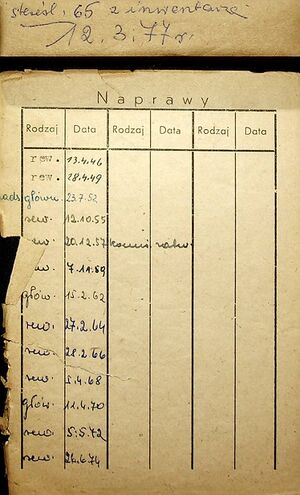 65 z inwentarza
12.3.77r.
Naprawy
Rodzaj Data Rodzaj Data Rodzaj Data
rew. 13.4.46
rew. 28.4.49
główn. 23.7.52
rew. 12.10.55
ew. 20.12.57
ew. 7.11.59
głów. 15.2.62
rew. 27.2.64
rew. 28.2.66
rew. 5.4.68
głów. 11.4.70
rew. 5.5.72
rew. 26.6.74